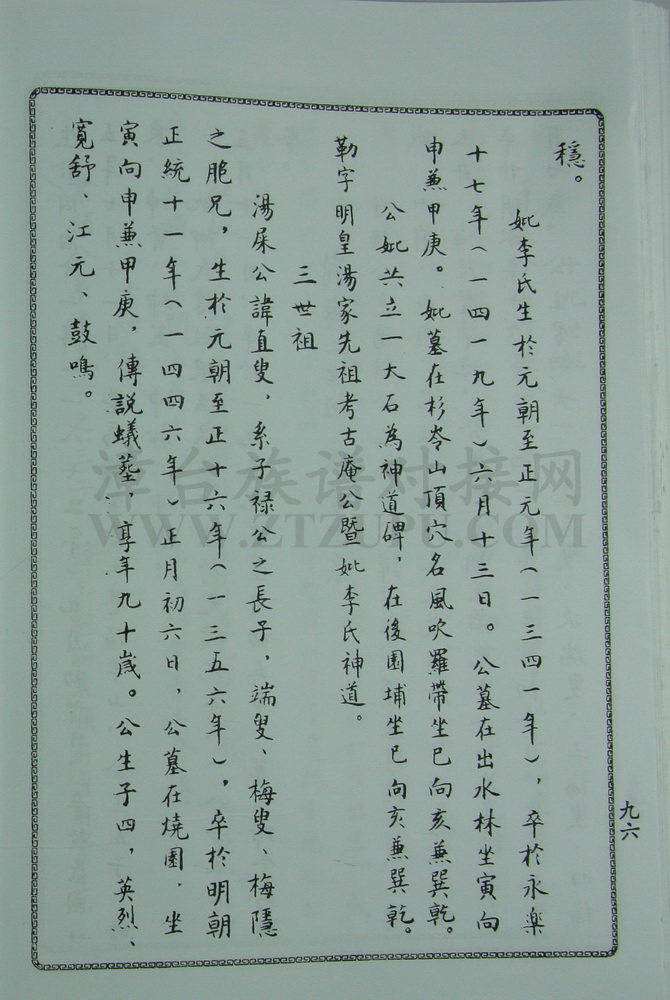 穩。
妣李氏生於元朝至正元年(一三四一年),卒於永樂
十七年(一四一九年)六月十三日。公墓在出水林坐寅向
申兼甲庚。妣墓在杉岺山頂穴名風吹羅帶坐巳向亥兼巽乾。
公妣共立一大石為神道碑,在後園埔坐巳向亥兼巽乾。
勒字明皇湯家先祖考古庵公暨妣李氏神道。
三世祖
湯屎公諱直叟,系子祿公之長子,端叟、梅叟、梅隱
之胞兄,生於元朝至正十六年(一三五六年),卒於明朝
正統十一年(一四四六年)正月初六日,公墓在燒園.坐
寅向申兼甲庚,傳說蟻葬,享年九十歲。公生子四,英烈、
寬舒、江元、鼓鳴。
九六
漳台族谱对接网
WWW.ZTZUPU.COM